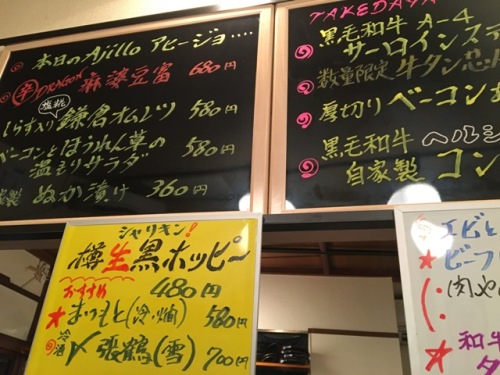 本日のAjillo アヒージョ‥‥
辛DRAGON 麻婆豆富 680円
塩糀
しらす入り鎌倉オムレツ 580円
ベーコンとほうれん草の
温もりサラダ 580円
自家製 ぬか漬け 360円
TAKEDAYA
黒毛和牛 A-4
サーロインステ
数量限定 牛タン芯
厚切り ベーコン
黒毛和牛 ヘルシ
自家製 コン
シャリキン!
樽生黒ホッピー
おすすめ 480円
★まつもと(冷・燗) 580円
冷酒 〆張鶴(雪) 700円
エビと
★ビーフ
(・肉や
★和牛